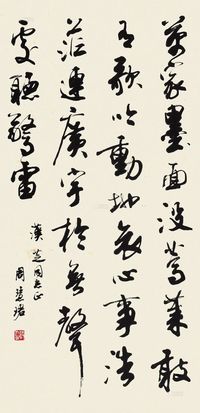 萬家墨面没蒿莱敢
有歌吟動地哀心事浩
茫連廣宇於無聲
處聽驚雷
漢芝同志正
周慧珺